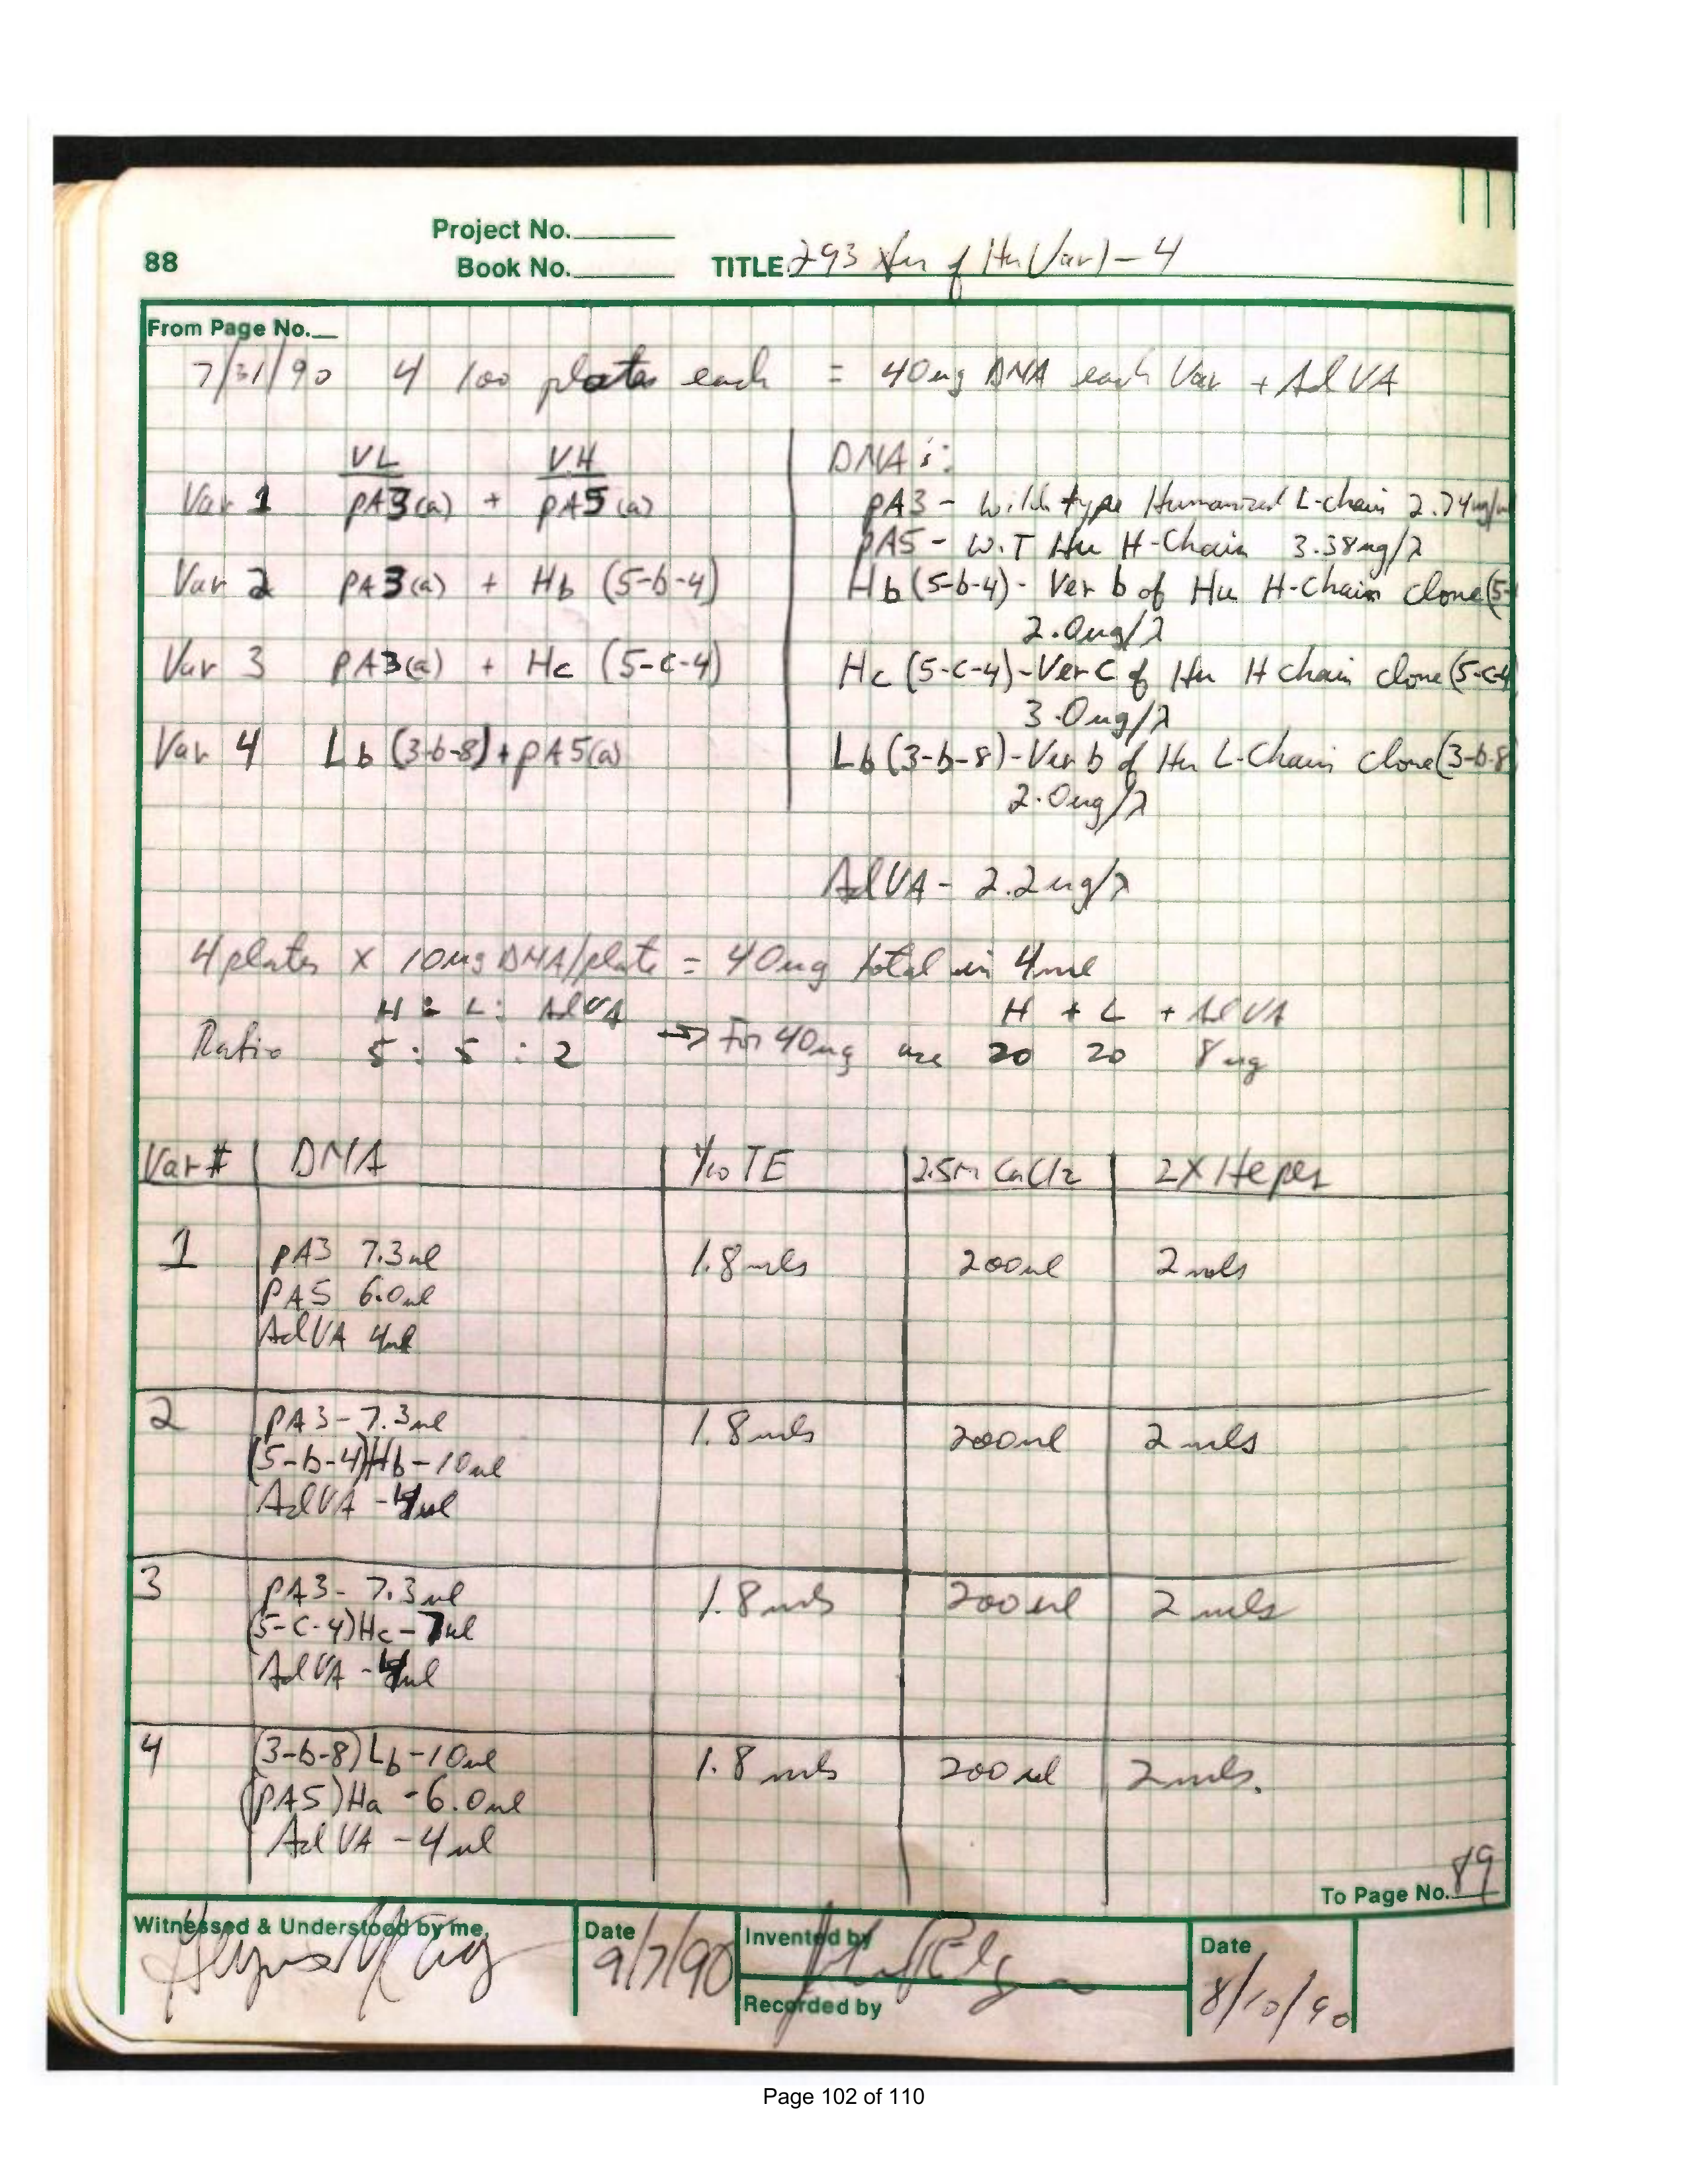 Project No.
88
Book No.
TITLE 293 Xfn of Hu(Var)-4
From Page No.
7/31/90 4 100 plates each = 40ug DNA each Var + AdVA
VL VH
Var 1 pA3(a) + pA5(a)
Var 2 pA3(a) + Hb (5-b-4)
Var 3 pA3(a) + Hc (5-c-4)
Var 4 Lb (3-b-8) + pA5(a)
DNA's:
pA3 - Wild type Humanized L-chain 2.74ug/
pA5 - W.T Hu H-Chain 3.38ug/λ
Hb (5-b-4) - Ver b of Hu H-Chain clone (5-
2.0ug/λ
Hc (5-c-4) - Ver C of Hu H chain clone (5-c-4
3.0ug/λ
Lb (3-b-8) - Ver b of Hu L-Chain clone (3-b-8
2.0ug/λ
AdVA - 2.2ug/λ
4 plates x 10ug DNA/plate = 40ug total in 4ml
H : L : AdVA H + L + AdVA
Ratio 5 : 5 : 2 → For 40ug use 20 20 8ug
Var # DNA 1/10 TE 2.5M CaCl2 2X Hepes
1 pA3 7.3ul 1.8mls 200ul 2mls
PA5 6.0ul
AdVA 4ul
2 pA3 - 7.3ul 1.8mls 200ul 2mls
(5-b-4)Hb - 10ul
AdVA - 4ul
3 pA3 - 7.3ul 1.8mls 200ul 2mls
(5-c-4)Hc - 7ul
AdVA - 4ul
4 (3-b-8)Lb - 10ul 1.8mls 200ul 2mls.
(pA5)Ha - 6.0ul
AdVA - 4ul
To Page No. 89
Witnessed & Understood by me,
Date
9/7/90
Invented by
Recorded by
Date
8/10/90
Page 102 of 110